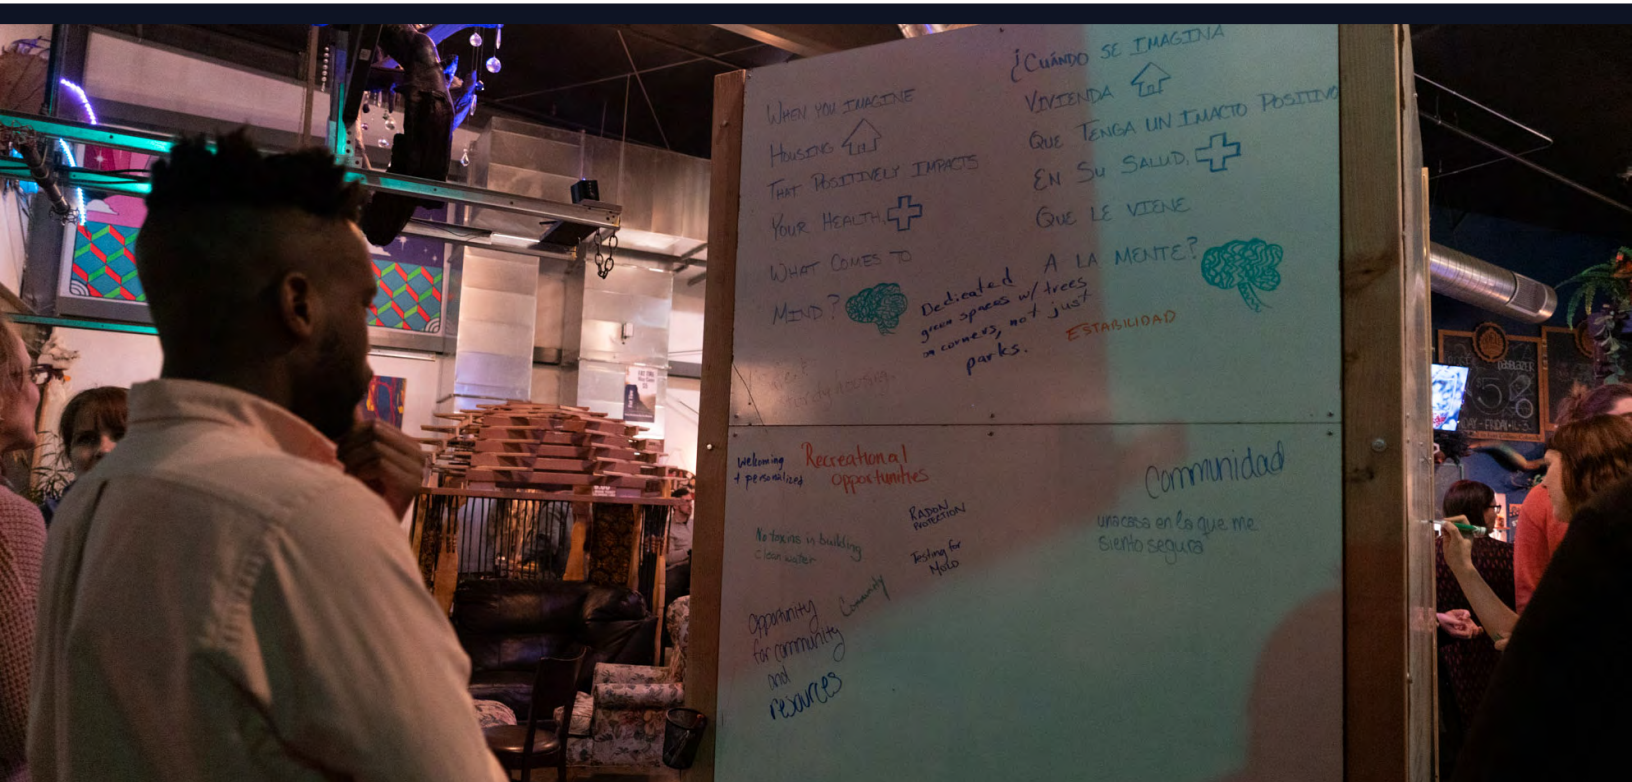 WHEN YOU IMAGINE
HOUSING
THAT POSITIVELY IMPACTS
YOUR HEALTH,
WHAT COMES TO
MIND?
¿CUÁNDO SE IMAGINA
VIVIENDA
QUE TENGA UN IMACTO POSITIVO
EN SU SALUD,
QUE LE VIENE
A LA MENTE?
Dedicated
green spaces w/ trees
on corners, not just
parks.
ESTABILIDAD
welcoming
+ personalized
Recreational
opportunities
RADON
PROTECTION
No toxins in building
clean water
Testing for
Mold
Community
opportunity
for community
and
resources
Communidad
una casa en la que me
siento segura